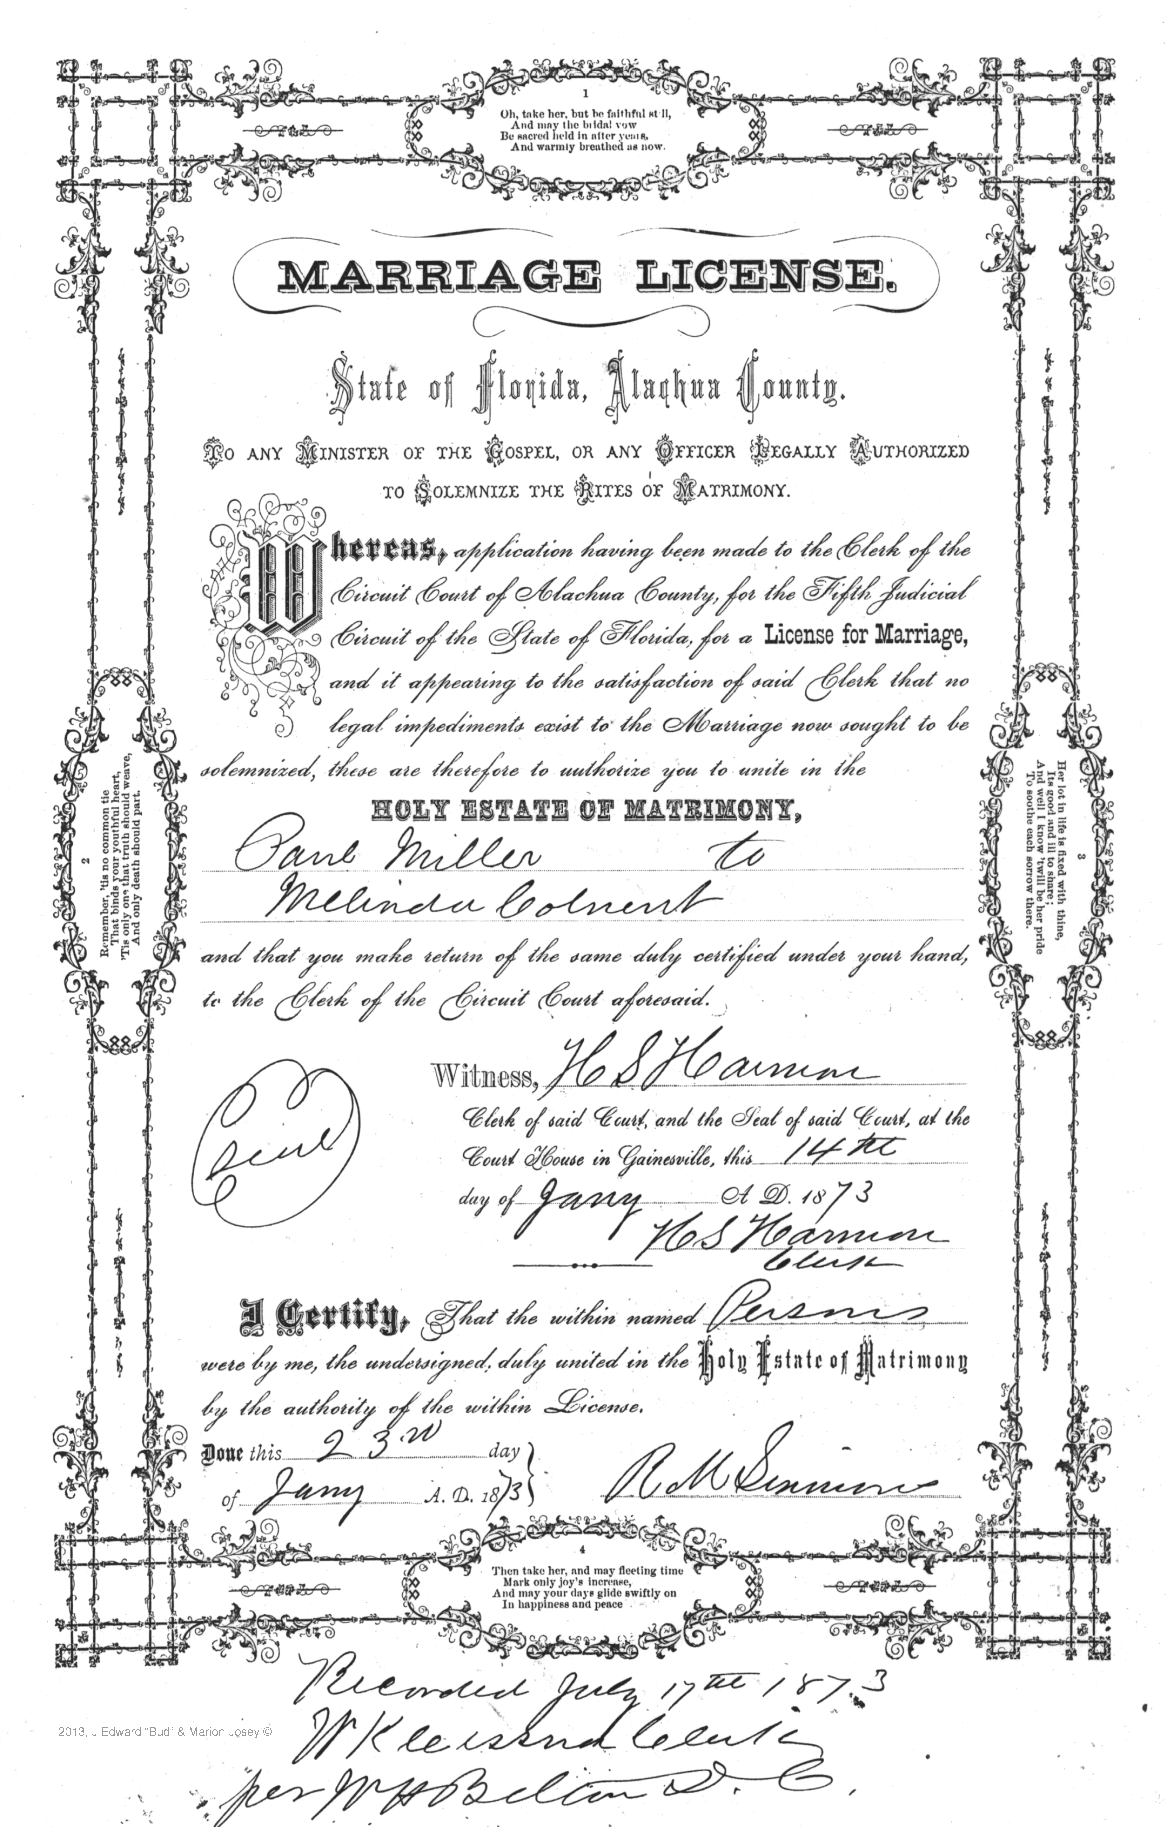 1
Oh, take her, but be faithful still,
And may the bridal vow
Be sacred held in after years,
And warmly breathed as now.
MARRIAGE LICENSE.
State of Florida, Alachua County.
TO ANY MINISTER OF THE GOSPEL, OR ANY OFFICER LEGALLY AUTHORIZED
TO SOLEMNIZE THE RITES OF MATRIMONY.
Whereas, application having been made to the Clerk of the
Circuit Court of Alachua County, for the Fifth Judicial
Circuit of the State of Florida, for a License for Marriage,
and it appearing to the satisfaction of said Clerk that no
legal impediments exist to the Marriage now sought to be
solemnized, these are therefore to authorize you to unite in the
HOLY ESTATE OF MATRIMONY,
Paul Miller to
Melinda
and that you make return of the same duly certified under your hand,
to the Clerk of the Circuit Court aforesaid.
Witness, H S Harmon
Clerk of said Court, and the Seal of said Court, at the
Court House in Gainesville, this 14th
day of Jany A D. 1873
H S Harmon
Clerk
Seal
I Certify, That the within named Persons
were by me, the undersigned, duly united in the Holy Estate of Matrimony
by the authority of the within License.
Done this 23rd day
of Jany A. D. 1873
R M
2
Remember, 'tis no common tie
That binds your youthful heart,
'Tis only one that truth should weave,
And only death should part.
3
Her lot in life is fixed with thine,
Its good and ill to share;
And well I know 'twill be her pride
To soothe each sorrow there.
4
Then take her, and may fleeting time
Mark only joy's increase,
And may your days glide swiftly on
In happiness and peace
Recorded July 17th 1873
2013, J Edward "Bud" & Marion Josey ©
Clerk
per W H Belton D. C.